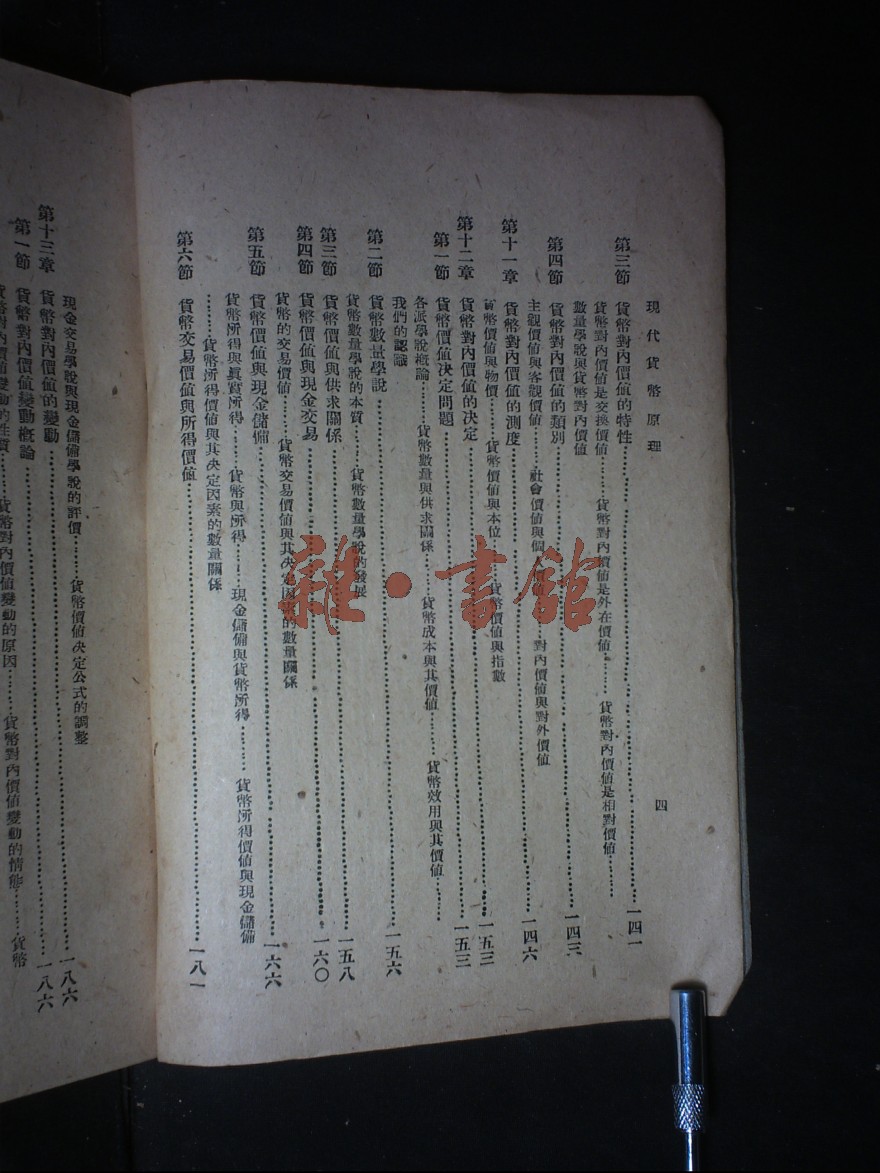 現代貨幣原理
四
第三節 貨幣對內價值的特性……一四一
貨幣對內價值是交換價值……貨幣對內價值是外在價值……貨幣對內價值是相對價值……
數量學說與貨幣對內價值
第四節 貨幣對內價值的類別……一四三
主觀價值與客觀價值……社會價值與個人價值……對內價值與對外價值
第十一章 貨幣對內價值的測度……一四六
貨幣價值與物價……貨幣價值與本位……貨幣價值與指數
第十二章 貨幣對內價值的決定……一五三
第一節 貨幣價值決定問題……一五三
各派學說概論……貨幣數量與供求關係……貨幣成本與其價值……貨幣效用與其價值……
我們的認識
第二節 貨幣數量學說……一五六
貨幣數量學說的本質……貨幣數量學說的發展
第三節 貨幣價值與供求關係……一五八
第四節 貨幣價值與現金交易……一六〇
貨幣的交易價值……貨幣交易價值與其決定因素的數量關係
第五節 貨幣價值與現金儲備……一六六
貨幣所得與眞實所得……貨幣與所得……現金儲備與貨幣所得……貨幣所得價值與現金儲備
……貨幣所得價值與其決定因素的數量關係
第六節 貨幣交易價值與所得價值……一八一
現金交易學說與現金儲備學說的評價……貨幣價值決定公式的調整
第十三章 貨幣對內價值的變動……一八六
第一節 貨幣對內價值變動概論……一八六
貨幣對內價值變動的性質……貨幣對內價值變動的原因……貨幣對內價值變動的情態……貨幣
雜·書館